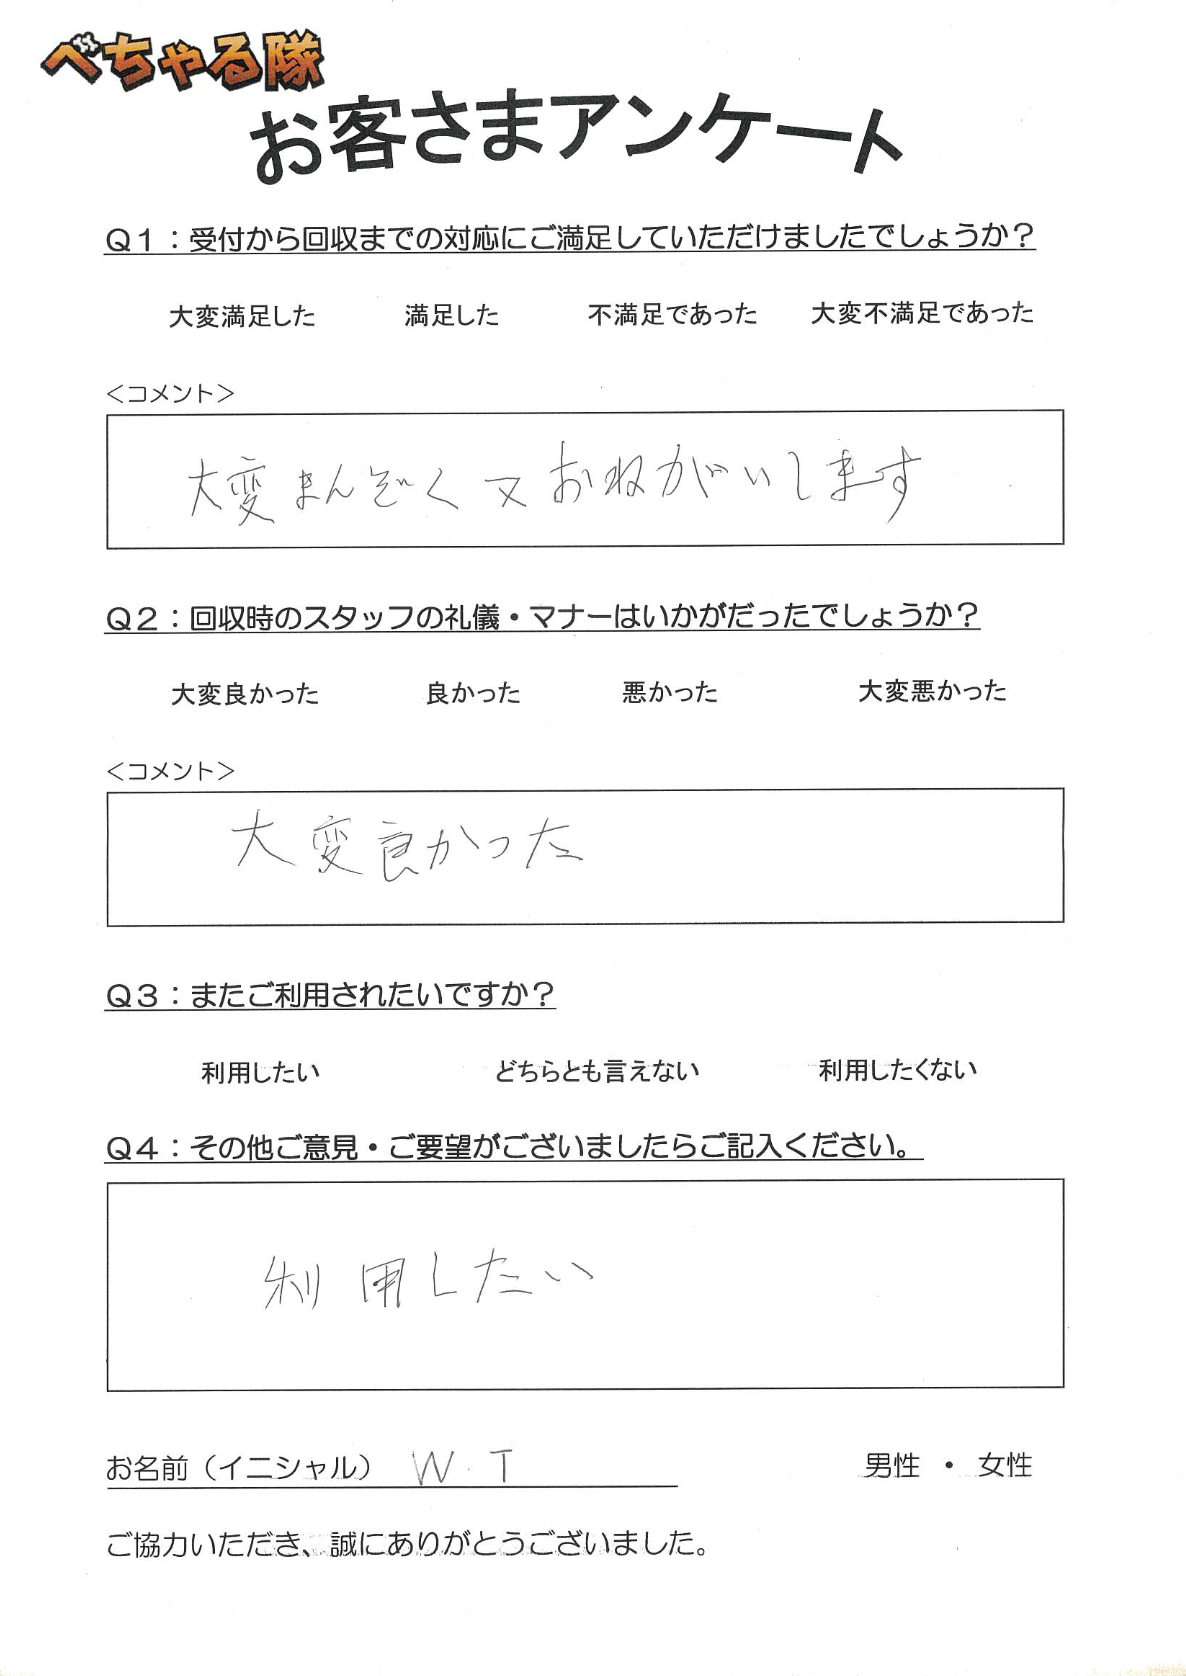 べちゃる隊
お客さまアンケート
Q1：受付から回収までの対応にご満足していただけましたでしょうか？
大変満足した 満足した 不満足であった 大変不満足であった
＜コメント＞
大変まんぞく又おねがいします
Q2：回収時のスタッフの礼儀・マナーはいかがだったでしょうか？
大変良かった 良かった 悪かった 大変悪かった
＜コメント＞
大変良かった
Q3：またご利用されたいですか？
利用したい どちらとも言えない 利用したくない
Q4：その他ご意見・ご要望がございましたらご記入ください。
利用したい
お名前（イニシャル） W.T 男性 ・ 女性
ご協力いただき、誠にありがとうございました。